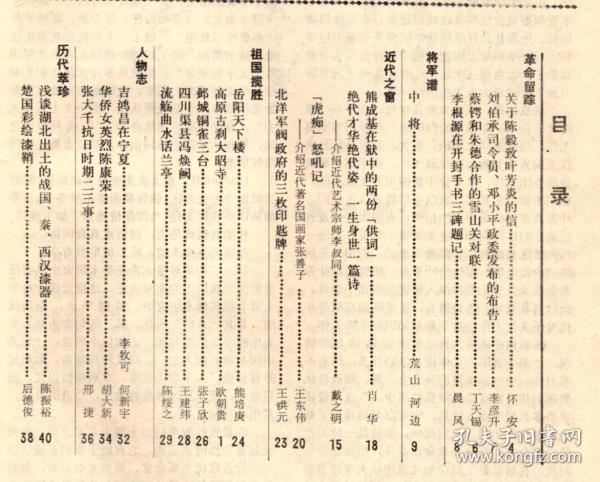 目录
革命留踪
关于陈毅致叶芳炎的信 怀安 4
刘伯承司令员、邓小平政委发布的布告 李彦升
蔡锷和朱德合作的雪山关对联 丁天锡 6
李根源在开封手书三碑题记 晨风 8
将军谱
中将 荒山 河边 9
近代之窗
熊成基在狱中的两份「供词」 肖华 18
绝代才华绝代姿 一生身世一篇诗
——介绍近代艺术宗师李叔同 戴之明 15
「虎痴」怒吼记
——介绍近代著名国画家张善子 王东伟 20
北洋军阀政府的三枚印匙牌 王洪元 23
祖国揽胜
岳阳天下楼 熊培庚 24
高原古刹大昭寺 欧朝贵 1
邺城铜雀三台 张子欣 26
四川渠县冯焕阙 王建纬 28
流觞曲水话兰亭 陈绥之 29
人物志
吉鸿昌在宁夏 李牧可 何新宇 32
华侨女英烈陈康荣 胡大新 34
张大千抗日时期二三事 邢捷 36
历代萃珍
浅谈湖北出土的战国、秦、西汉漆器 陈振裕 40
楚国彩绘漆鞘 后德俊 38
孔夫子旧书网
www.kongfz.com